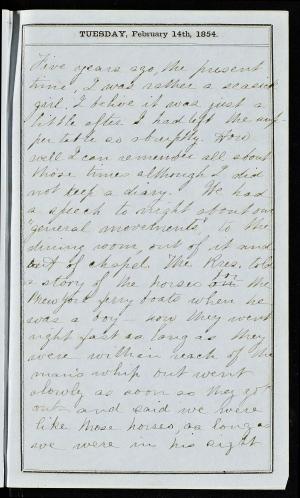 TUESDAY, February 14th, 1854.
Five years ago, the present
time, I was rather a seasick
girl. I belive it was just a
little after I had left the sup-
per table so abruptly. How
well I can remember all about
those times although I did
not keep a diary. We had
a speech to night about our
"general movements", to the
dining room, out of it and
out of chapel. The Pres. told
a story of the horses on the
New York ferry boats when he
was a boy - how they went
right fast as long as they
were within reach of the
man's whip but went
slowly as soon as they got
out - and said we were
like those horses, as long as
we were in his sight